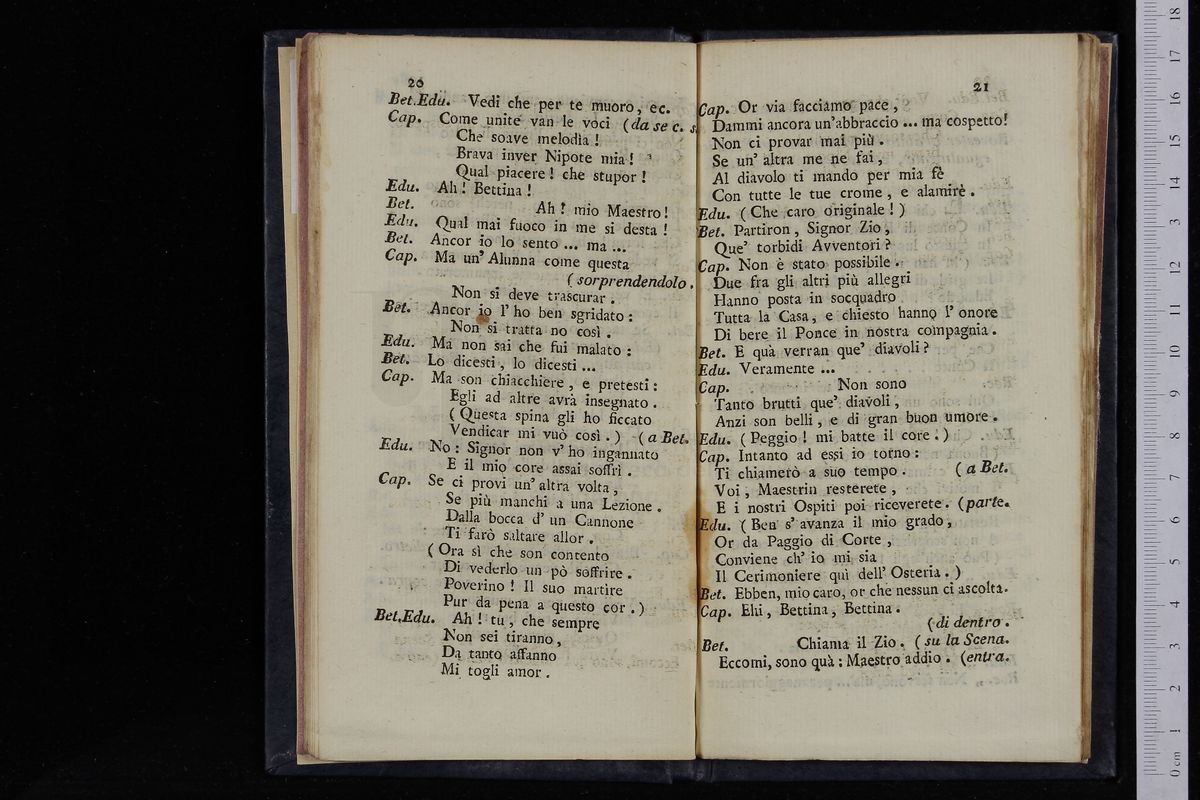 20
Bet.Edu. Vedi che per te muoro, ec.
Cap. Come unite van le voci (da se c. s.
Che soave melodìa!
Brava inver Nipote mia!
Qual piacere! che stupor!
Edu. Ah! Bettina!
Bet. Ah! mio Maestro!
Edu. Qual mai fuoco in me si desta!
Bet. Ancor io lo sento ... ma ...
Cap. Ma un' Alunna come questa
(sorprendendolo.
Non si deve trascurar.
Bet. Ancor io l' ho ben sgridato:
Non si tratta no così.
Edu. Ma non sai che fui malato:
Bet. Lo dicesti, lo dicesti ...
Cap. Ma son chiacchiere, e pretesti:
Egli ad altre avrà insegnato.
(Questa spina gli ho ficcato
Vendicar mi vuò così.) (a Bet.
Edu. No: Signor non v' ho ingannato
E il mio core assai soffrì.
Cap. Se ci provi un' altra volta,
Se più manchi a una Lezione.
Dalla bocca d' un Cannone
Ti farò saltare allor.
(Ora sì che son contento
Di vederlo un pò soffrire.
Poverino! Il suo martire
Pur da pena a questo cor.)
Bet.Edu. Ah! tu, che sempre
Non sei tiranno,
Da tanto affanno
Mi togli amor.
21
Cap. Or via facciamo pace,
Dammi ancora un'abbraccio ... ma cospetto!
Non ci provar mai più.
Se un' altra me ne fai,
Al diavolo ti mando per mia fè
Con tutte le tue crome, e alamirè.
Edu. (Che caro originale!)
Bet. Partiron, Signor Zio,
Que' torbidi Avventori?
Cap. Non è stato possibile.
Due fra gli altri più allegri
Hanno posta in socquadro
Tutta la Casa, e chiesto hanno l' onore
Di bere il Ponce in nostra compagnia.
Bet. E quà verran que' diavoli?
Edu. Veramente ...
Cap. Non sono
Tanto brutti que' diavoli,
Anzi son belli, e di gran buon umore.
Edu. (Peggio! mi batte il core!)
Cap. Intanto ad essi io torno:
Ti chiamerò a suo tempo. (a Bet.
Voi, Maestrin resterete,
E i nostri Ospiti poi riceverete. (parte.
Edu. (Ben s' avanza il mio grado,
Or da Paggio di Corte,
Conviene ch' io mi sia
Il Cerimoniere quì dell' Osteria.)
Bet. Ebben, mio caro, or che nessun ci ascolta.
Cap. Ehi, Bettina, Bettina.
(di dentro.
Bet. Chiama il Zio. (su la Scena.
Eccomi, sono quà: Maestro addio. (entra.
0 cm 1 2 3 4 5 6 7 8 9 10 11 12 13 14 15 16 17 18